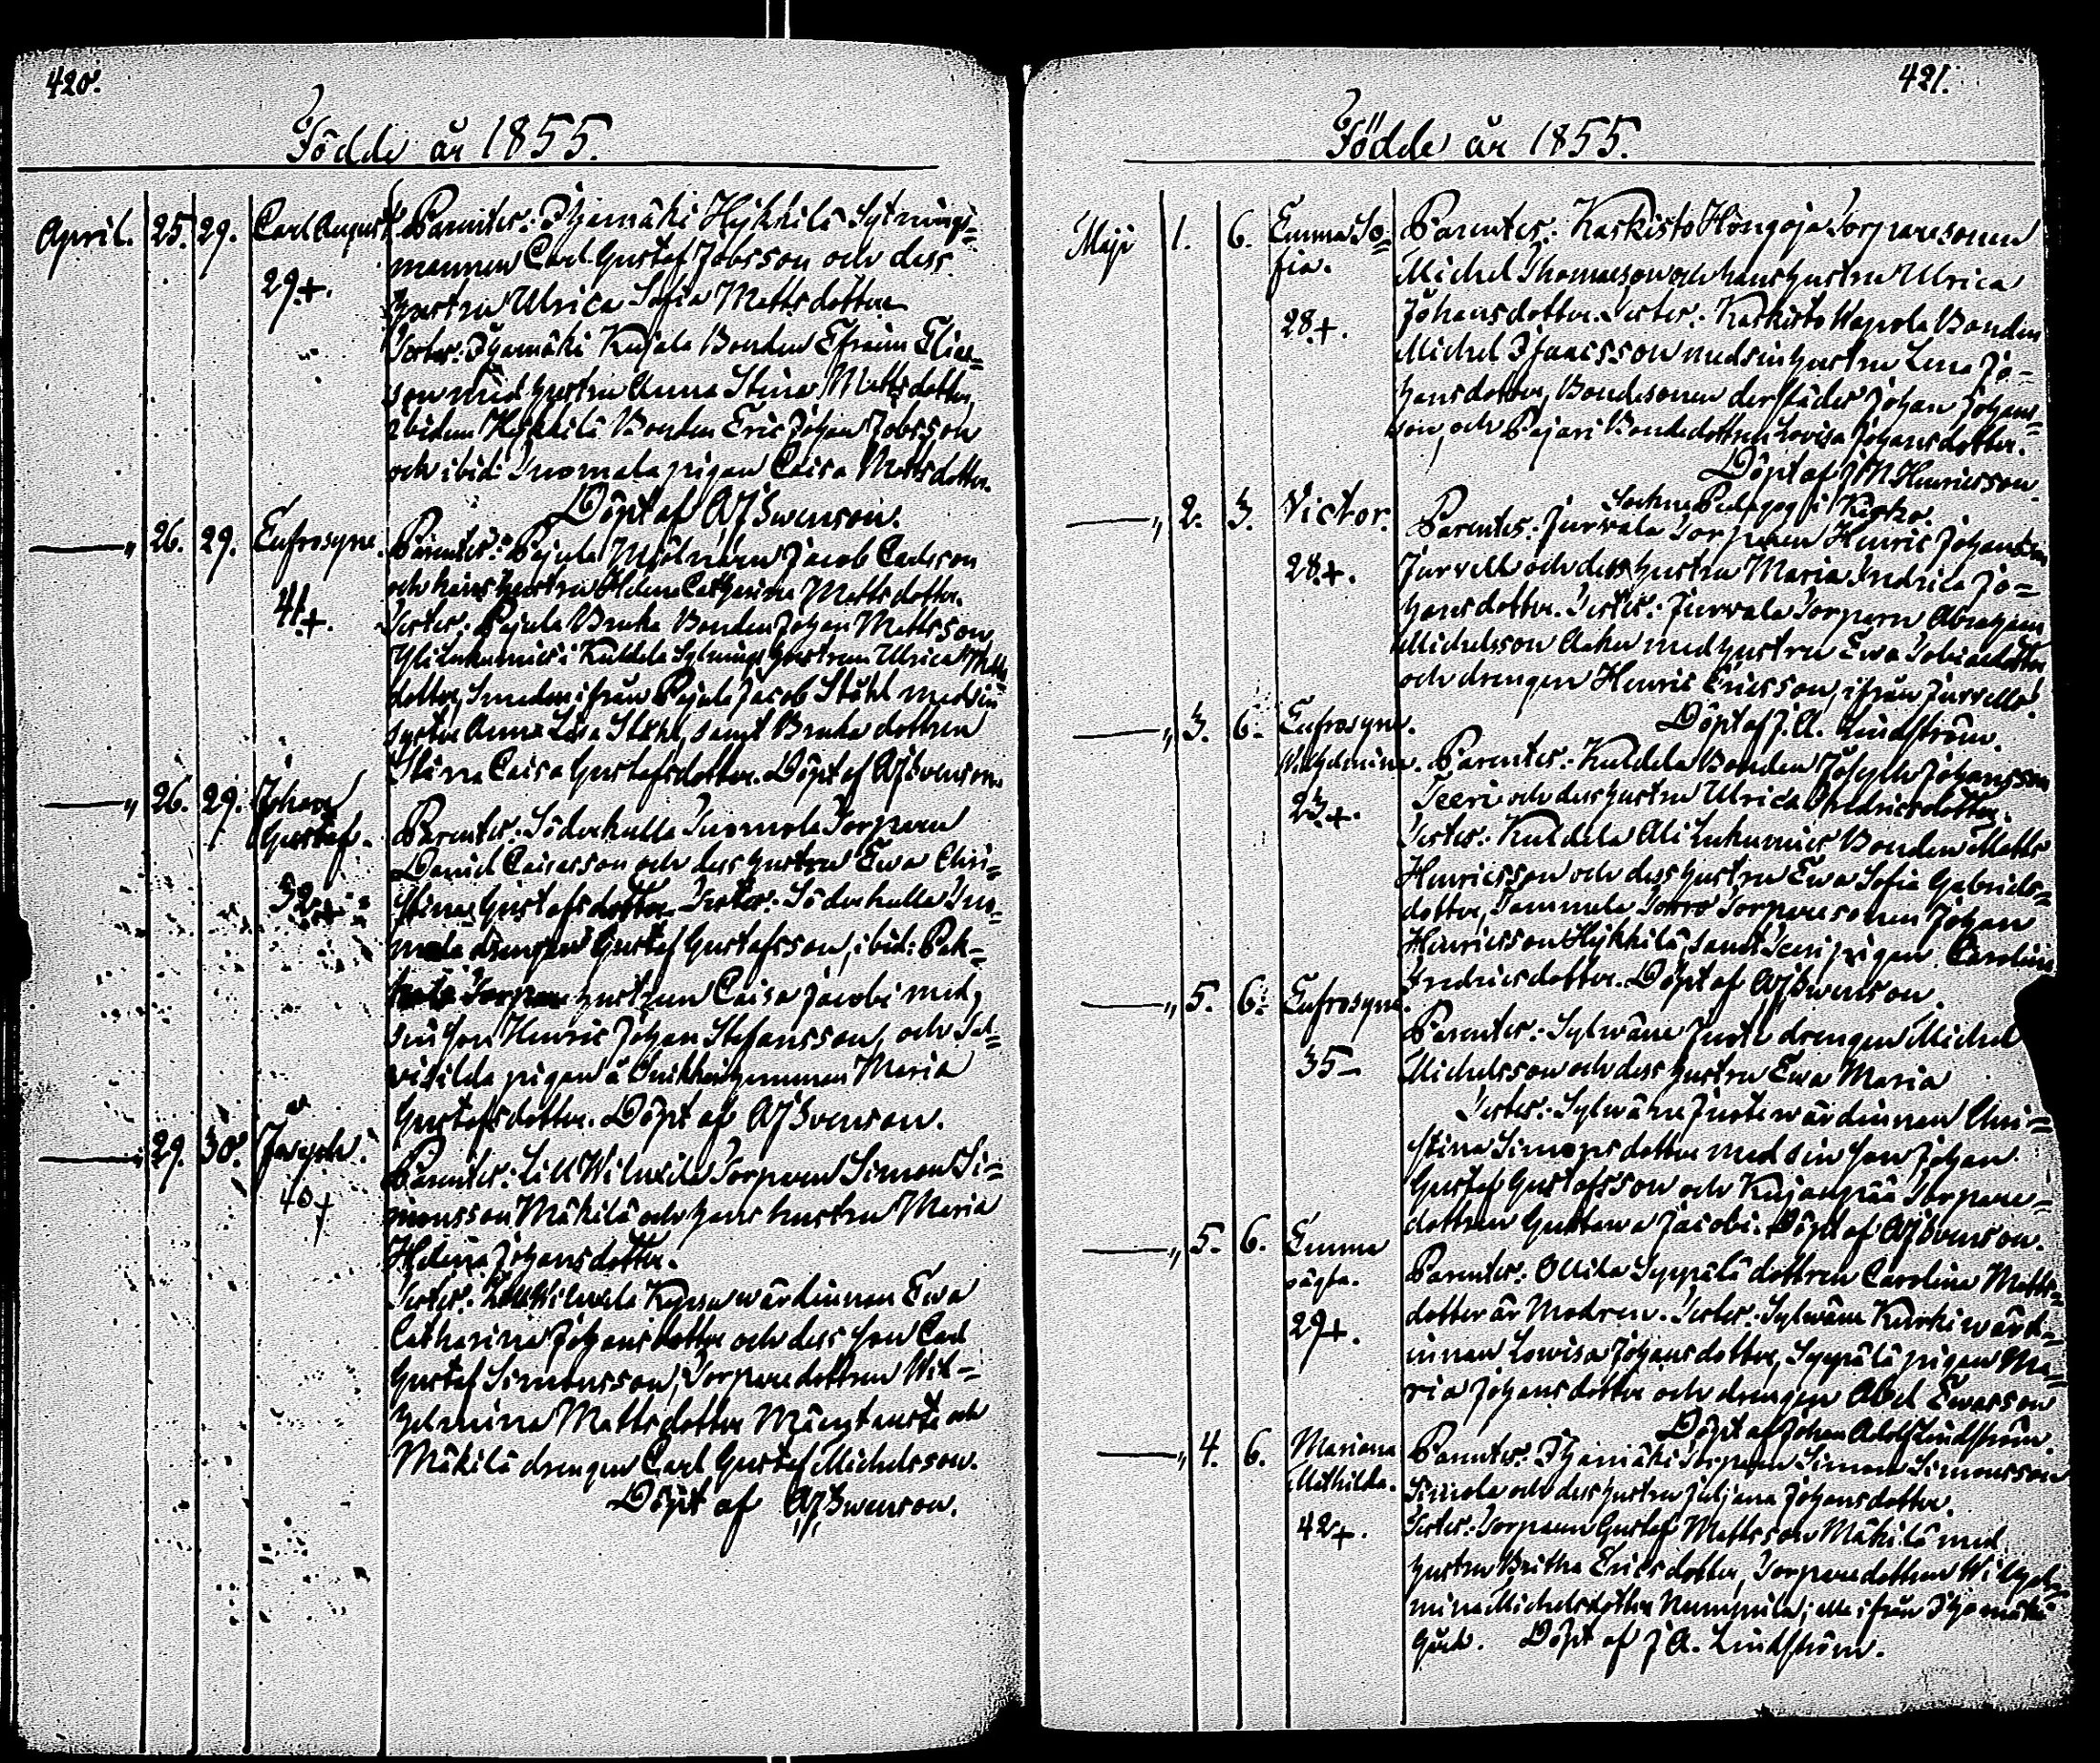 420.
Födde år 1855.
April. 25. 29. Carl August Parentes: Ihamäki Hykkilä Sytnings-
mannen Carl Gustaf Jobsson och dess
29+. hustru Ulrica Sofia Mattsdotter
Testes: Ihamäki Kujala Bonden Efraim Elias-
son med hustru Anna Stina Mattsdotter,
ibidem Hykkilä Bonden Eric Johan Jobsson
och ibid: Tuomala pigan Caisa Mattsdotter.
Döpt af AJSwenson.
—„ 26. 29. Eufrosyne. Parentes: Pajula Mjölnaren Jacob Carlsson
och hans hustru Helena Catharina Mattsdotter.
41+. Testes: Pajula Bruka Bonden Johan Mattsson
i Kuldela Sytnings hustrun Ulrica Matts
dotter, Smeden ifrån Pajula Jacob Ståhl med sin
hustru Anna Lisa Ståhl, samt Bruka dottren
Stina Caisa Gustafsdotter. Döpt af AJSwenson.
—„ 26. 29. Johan
Gustaf. Parentes: Söderkulla Tuomola Torparen
Daniel Caisasson och dess hustru Ewa Chri-
52+ stina Gustafsdotter. Testes: Söderkulla Tuo-
mala drengen Gustaf Gustafsson, ibid: Pak-
Torpare hustrun Caisa Jacobi med
sin son Henric Johan Stefansson, och
pigan å Maria
Gustafsdotter. Döpt af AJSwenson.
—„ 29. 30. Joseph. Parentes: Lill Wilnäs Torparen Simon Si-
40+ monsson Mäkilä och hans hustru Maria
Helena Johansdotter.
Testes: wärdinnan Ewa
Catharina Johansdotter och dess son Carl
Gustaf Simonsson, Torpare dottren Wil-
helmina Mattsdotter och
Mäkilä drengen Carl Gustaf Michelsson.
Döpt af AJSwenson.
421.
Födde år 1855.
Maji 1. 6. Emma So- Parentes: Karkisto Hongoja Torparesonen
fia. Michel Thomasson och hans hustru Ulrica
28+. Johansdotter. Testes: Karkisto Uopola Bonden
Michel Isacsson med sin hustru Lena Jo-
hansdotter, Bondesonen derstädes Johan Johans-
son, och Pajari Bondedottren Lovisa Johansdotter.
Döpt af J M Henricsson.
Sockne Pedagog i Kisko.
—„ 2. 3. Victor. Parentes: Jurvala Torparen Henric Johansson
28+. Jurvell och dess hustru Maria Fredrica Jo-
hansdotter. Testes: Jurvala Torparn Abraham
Michelsson med hustru Ewa Tobiædotter
och drengen Henric Ericsson, ifrån Jurvell
Döpt af J. A. Lindström.
—„ 3. 6. Eufrosyne.
Wilhelmina. Parentes: Kuldela Bonden Joseph Johansson
23+. Teeri och dess hustru Ulrica Fredricsdotter.
Testes: Kuldela Bonden Matts
Henricsson och dess hustru Ewa Sofia Gabriels-
dotter, Torparesonen Johan
Henricsson Hykkilä, samt Teeri pigan Carolina
Fredricsdotter. Döpt af AJSwenson.
—„ 5. 6. Eufrosyne. Parentes: Sylwäne Juotz drengen Michel
35— Michelsson och dess hustru Ewa Maria
Testes: Sylwäne Juotz wärdinnan Chri-
stina Simonsdotter med sin son Johan
Gustaf Gustafsson och Kujanpää Torpare-
dottren Gustawa Jacobi. Döpt af AJSwenson.
—„ 5. 6. Emma Parentes: Ollila Seppälä dottren Carolina Matts-
oägta. dotter är Modren. Testes: Sylwäne Kurki wärd-
29+. innan Lowisa Johansdotter, Seppälä pigan Ma-
ria Johansdotter och drengen Abel Ewasson
Döpt af Johan Adolf Lindström.
—„ 4. 6. Mariana Parentes: Ihamäki Torparen Simon Simonsson
Mathilda. Simola och dess hustru Juljana Johansdotter.
42+. Testes: Torparen Gustaf Mattsson Mäkilä med
hustru Britha Ericsdotter, Torparedottren Wilhel-
mina Michelsdotter; alla ifrån Ihamäki
gård. Döpt af J A. Lindström.